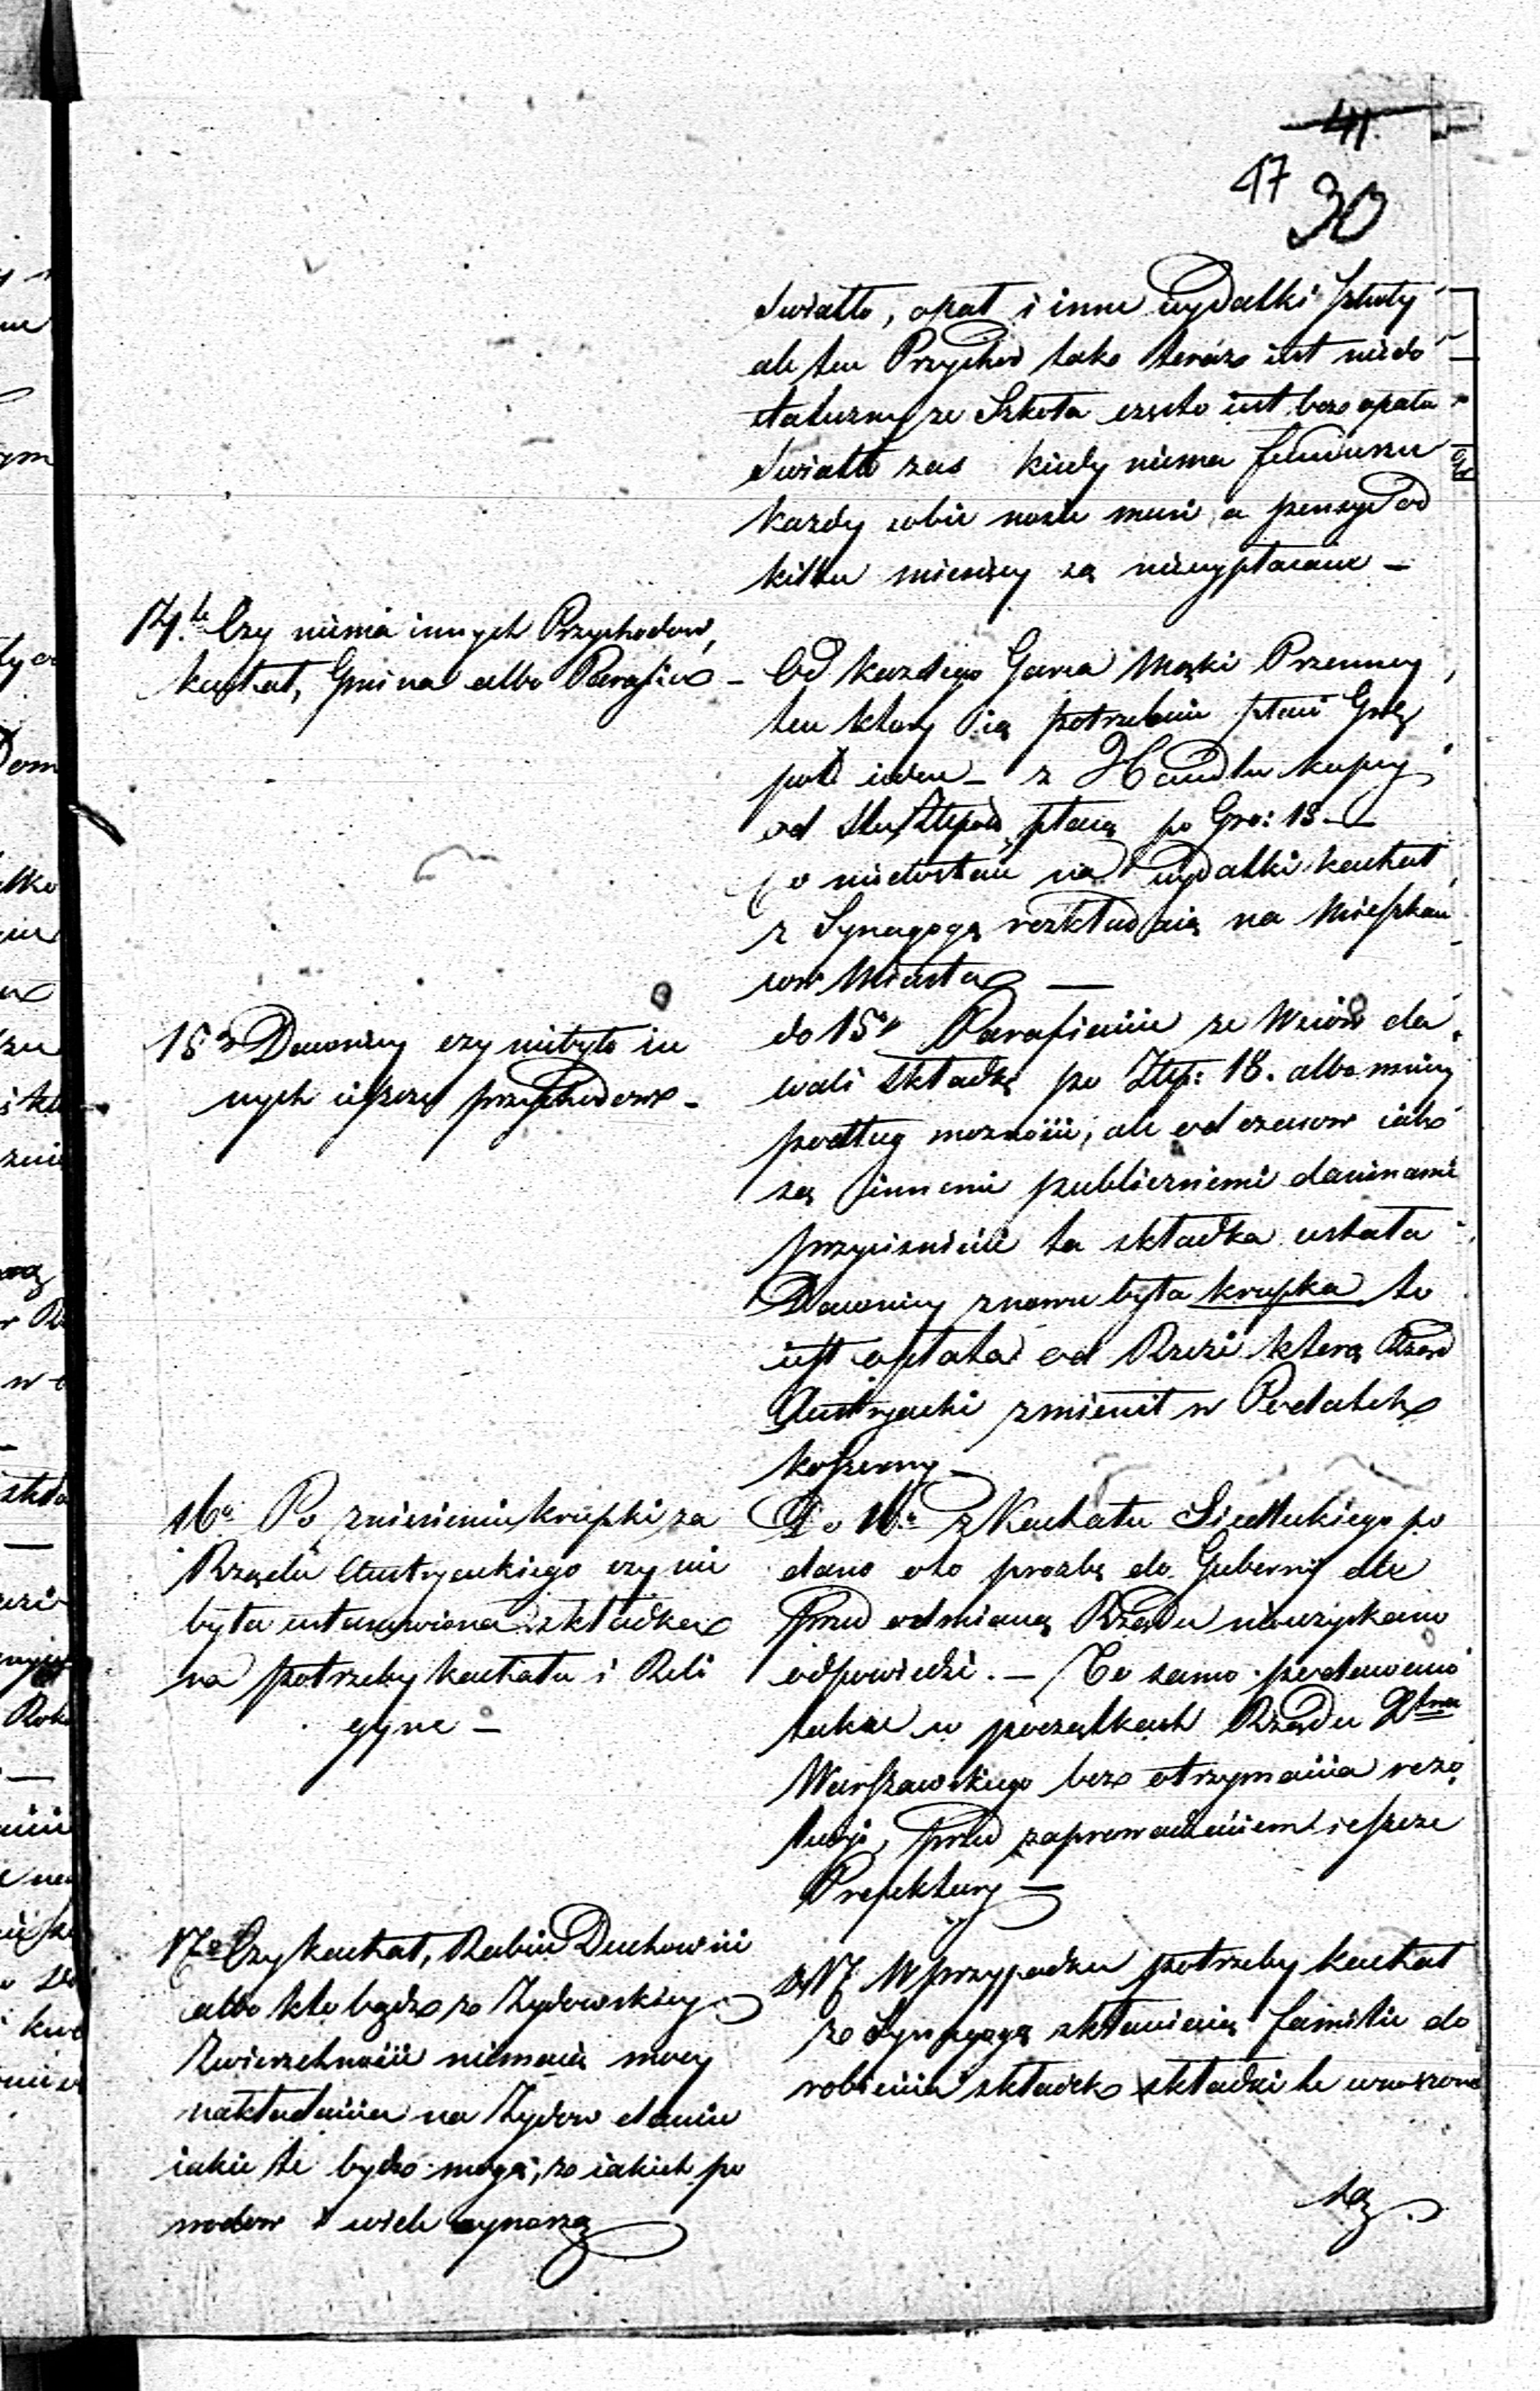 41.
47
30
Swiatło, opał i inne wydatki Szkoły
ale ten Przychod tak teraz iest niedo
stateczny ze Szkoła często iest bez opału
Swiatło zas kiedy niema funduszu
kazdy sobie nosic musi, a pensye od
kilku miesięcy są niewypłacane –
14.te Czy niema innych Przychodow,
kachał, Gmina albo Parafia –
Od kazdego Garca Mąki Przenney,
ten ktory ią potrzebuie płaci Grosz
poł ieden – z Handlu kupcy
od Stu Złłpol płacą po Gro: 18 –
Co niedostaie na wydatki kachał
z Synagogą rozkładaią na Mieszkan
cow Miasta –
15o Dawniey czy niebyło in
nych ieszcze przychodow –
do 15o Parafianie ze Wsiow da
wali składkę po Złłp: 18. albo mniey
podług moznosci, ale od czasow iak
są innemi publicznemi daninami
przycisnieni ta składka ustała
Dawniey znowu była krupka to
iest opłata od Rzezi którą Rząd
Austryacki zmienił w Podatek
koszerny –
16o Po zniesieniu krupki za
Rządu Austryackiego czy nie
była ustanowiona składka
na potrzeby kachału i Reli
gyne –
Do 16o z Kachału Siedleckiego po
dano oto prozbę do Guberny ale
przed odmianą Rządu nieuzyskano
odpowiedzi. – To samo podawano
także w początkach Rządu Xtwa
Warszawskiego bez otrzymania rezo
lucyi, przed zaprowadzeniem ieszcze
Prefektury –
17o Czy kachał, Rabin Duchowni
albo kto bądz z Zydowskiey
Zwierzchnosci niemaią mocy
nakładania na Zydow danin
iakie te bydz mogą, z iakich po
wodow i wiele wynoszą
do 17 W przypadku potrzeby kachał
z Synagogą skłaniaią familie do
robienia składek składki te wnoszone
są.